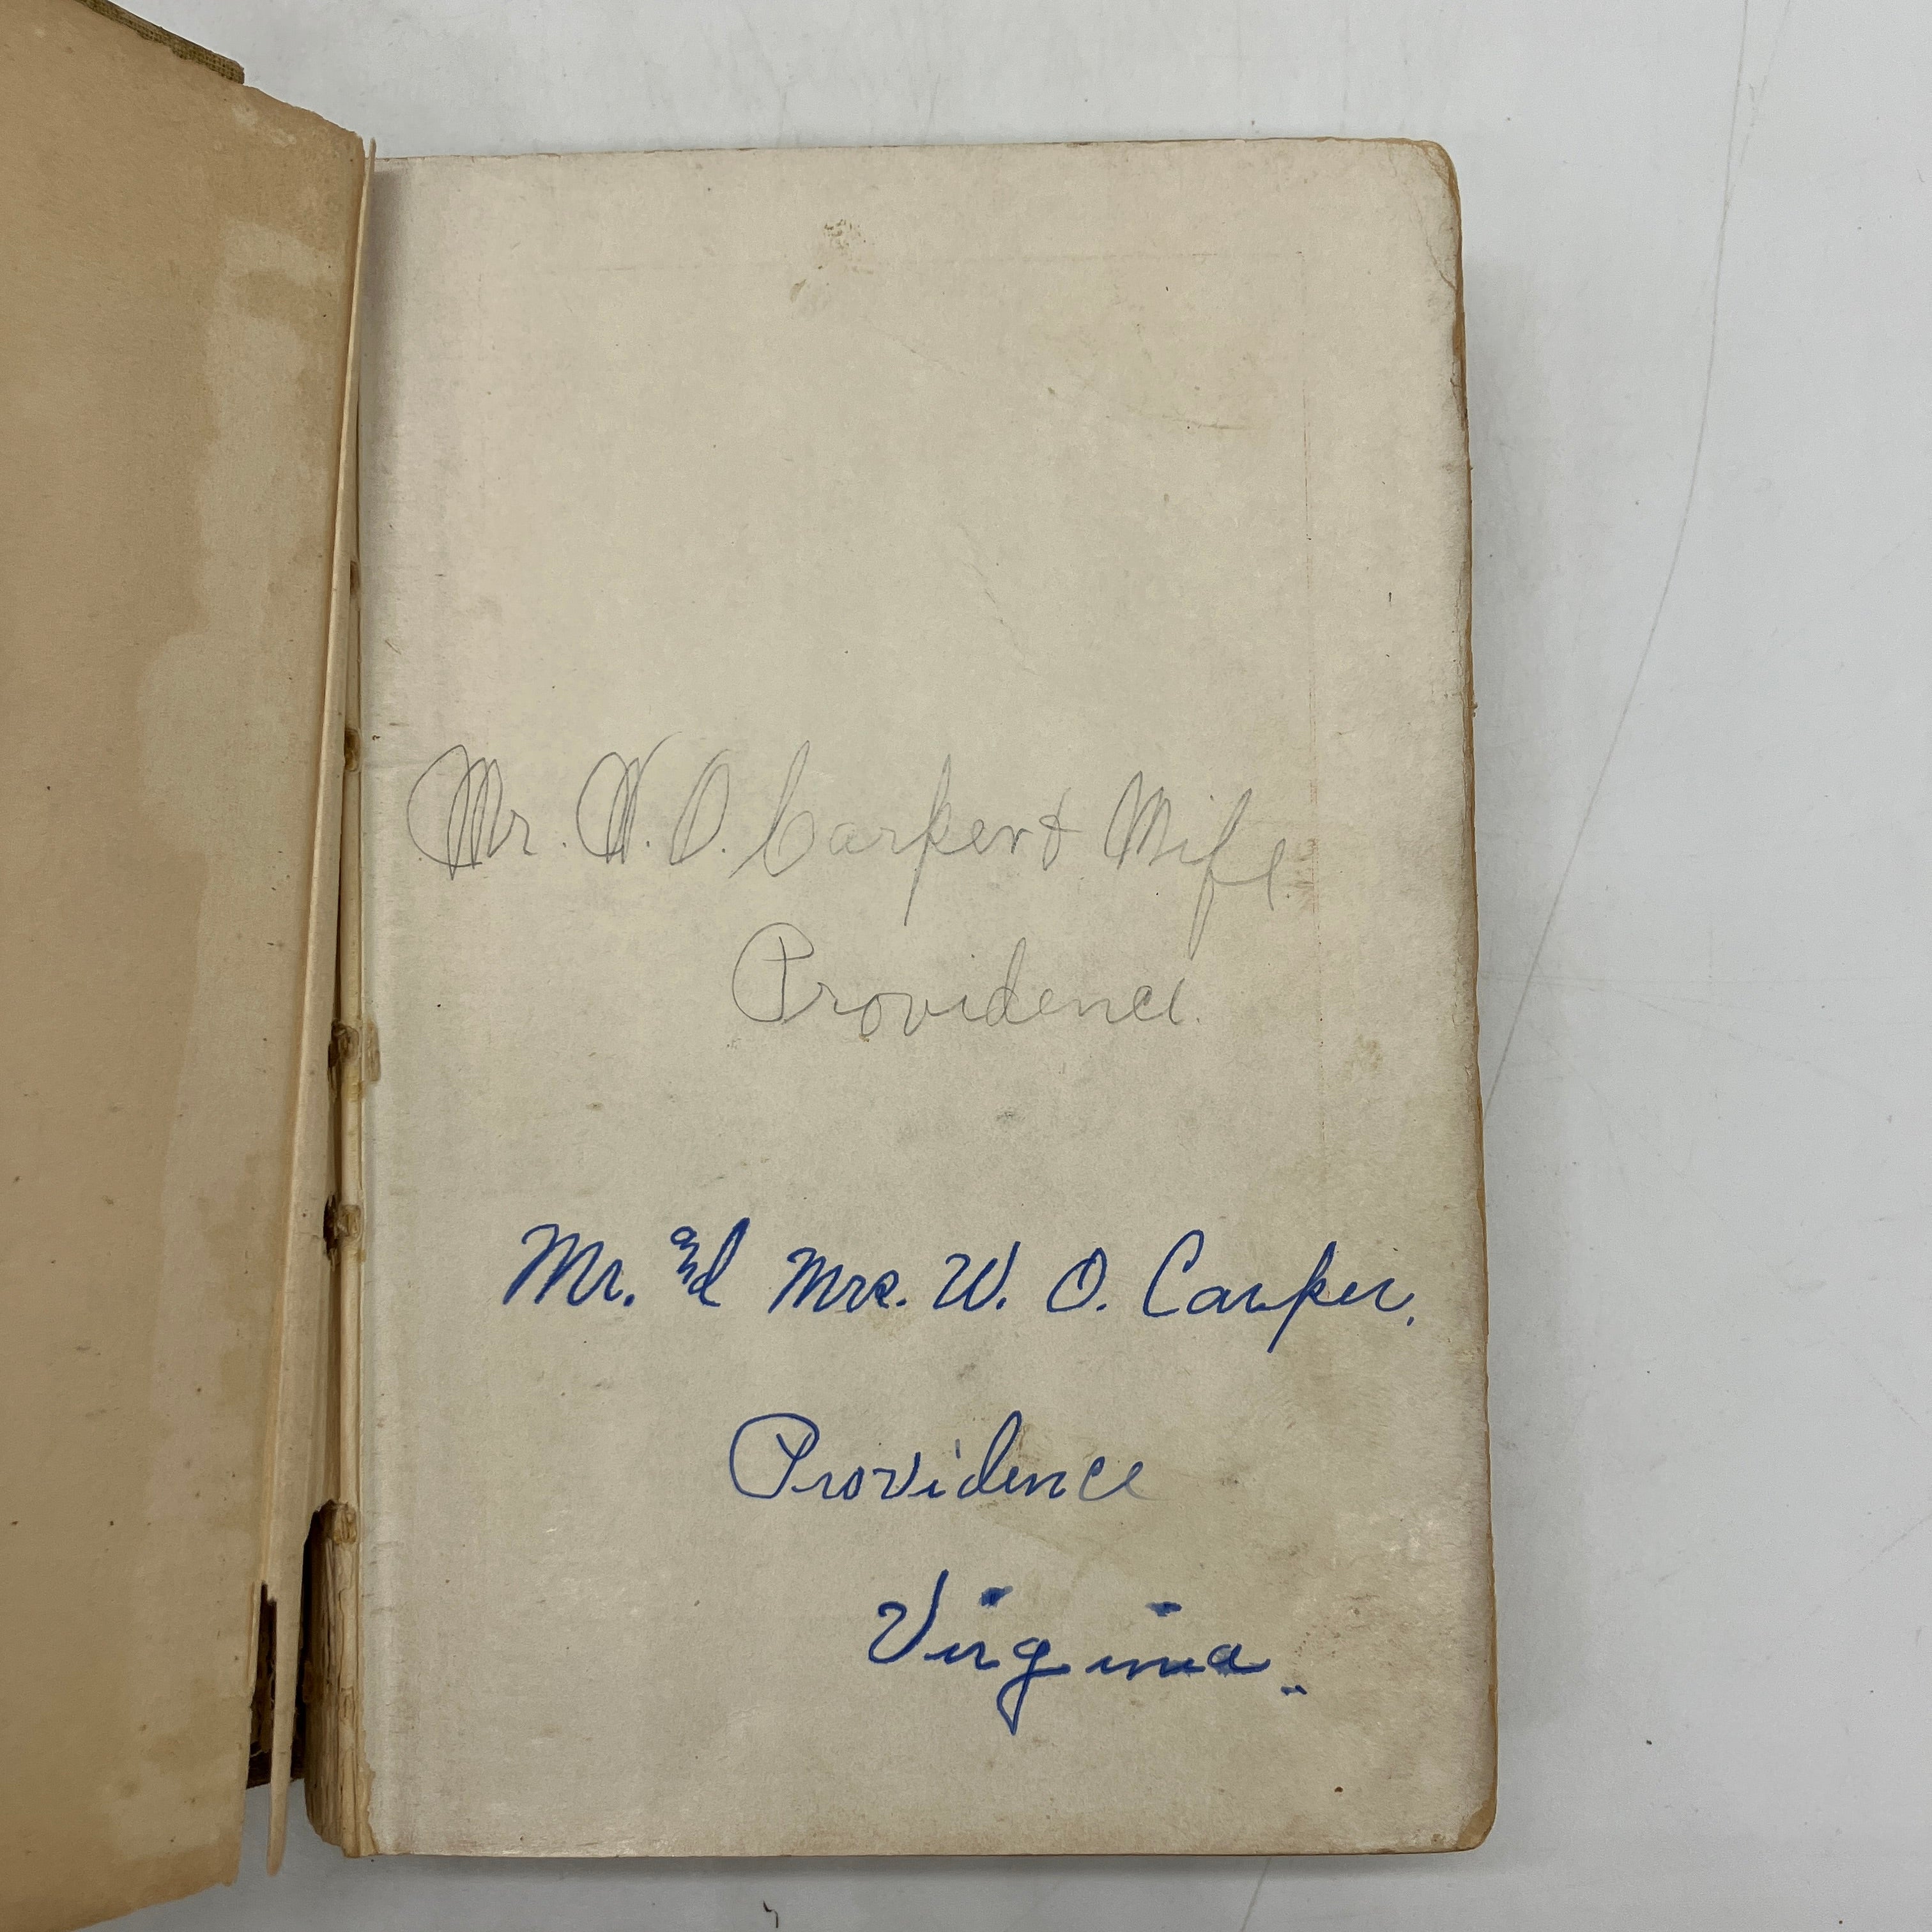 Mr. W. O. Carper & Wife.
Providence.
Mr. and Mrs. W. O. Carper.
Providence
Virginia.